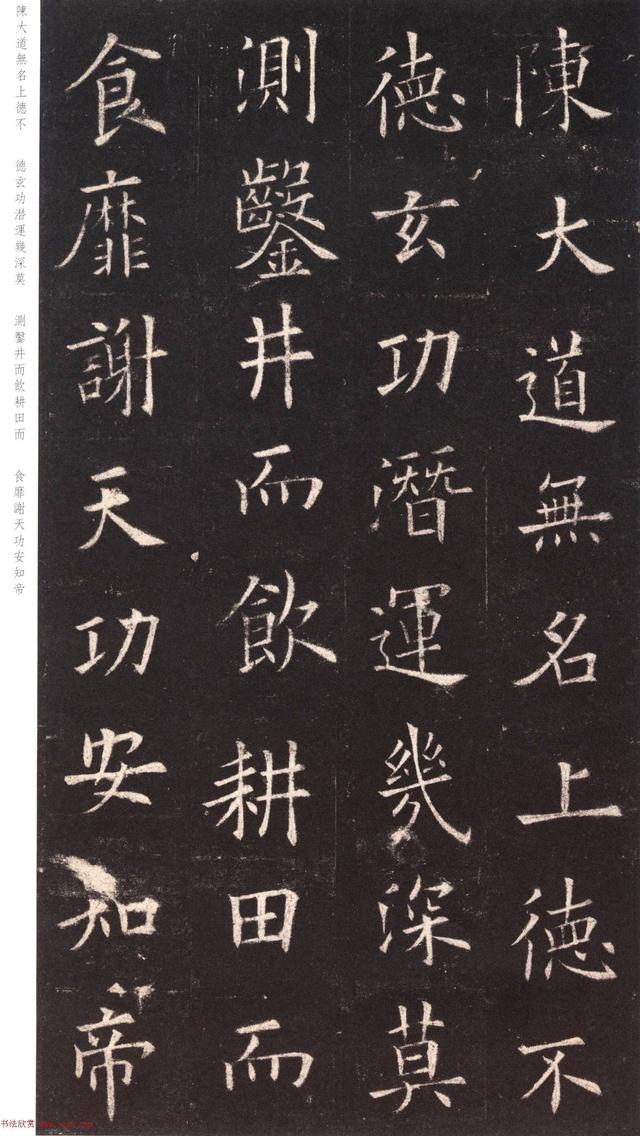 陳大道無名上德不
德玄功潛運幾深莫
測鑿井而飲耕田而
食靡謝天功安知帝
陳大道無名上德不
德玄功潜運幾深莫
測鑿井而飲耕田而
食靡謝天功安知帝
书法欣赏